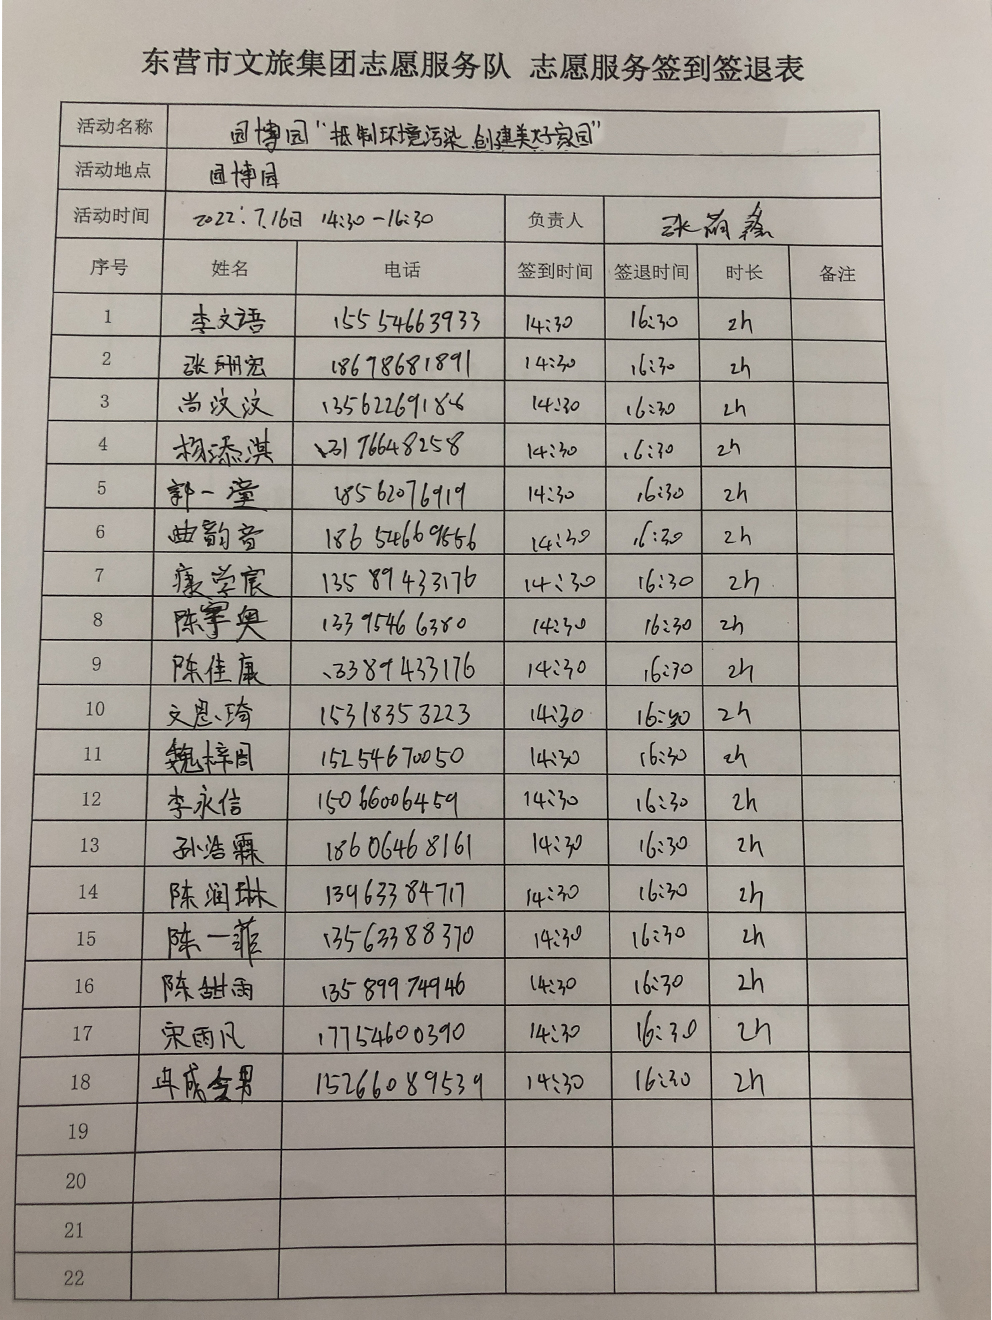 东营市文旅集团志愿服务队 志愿服务签到签退表
活动名称 园博园“抵制环境污染 创建美好家园”
活动地点 园博园
活动时间 2022.7.16日 14:30-16:30 负责人 张
序号 姓名 电话 签到时间 签退时间 时长 备注
1 李文语 15554663933 14:30 16:30 2h
2 张珊宏 18678681891 14:30 16:30 2h
3 尚汶汶 14:30 16:30 2h
4 杨添淇 14:30 16:30 2h
5 郭一潼 18562076919 14:30 16:30 2h
6 曲韵音 14:30 16:30 2h
7 康学宸 13589433176 14:30 16:30 2h
8 陈宇奥 13395466380 14:30 16:30 2h
9 陈佳康 14:30 16:30 2h
10 文思琦 15318353223 14:30 16:30 2h
11 魏梓同 15254670050 14:30 16:30 2h
12 李永信 15066006459 14:30 16:30 2h
13 孙浩霖 18606468161 14:30 16:30 2h
14 陈润琳 13963384717 14:30 16:30 2h
15 陈一菲 13563388370 14:30 16:30 2h
16 陈甜雨 13589974946 14:30 16:30 2h
17 宋雨凡 17754600390 14:30 16:30 2h
18 15266089539 14:30 16:30 2h
19
20
21
22